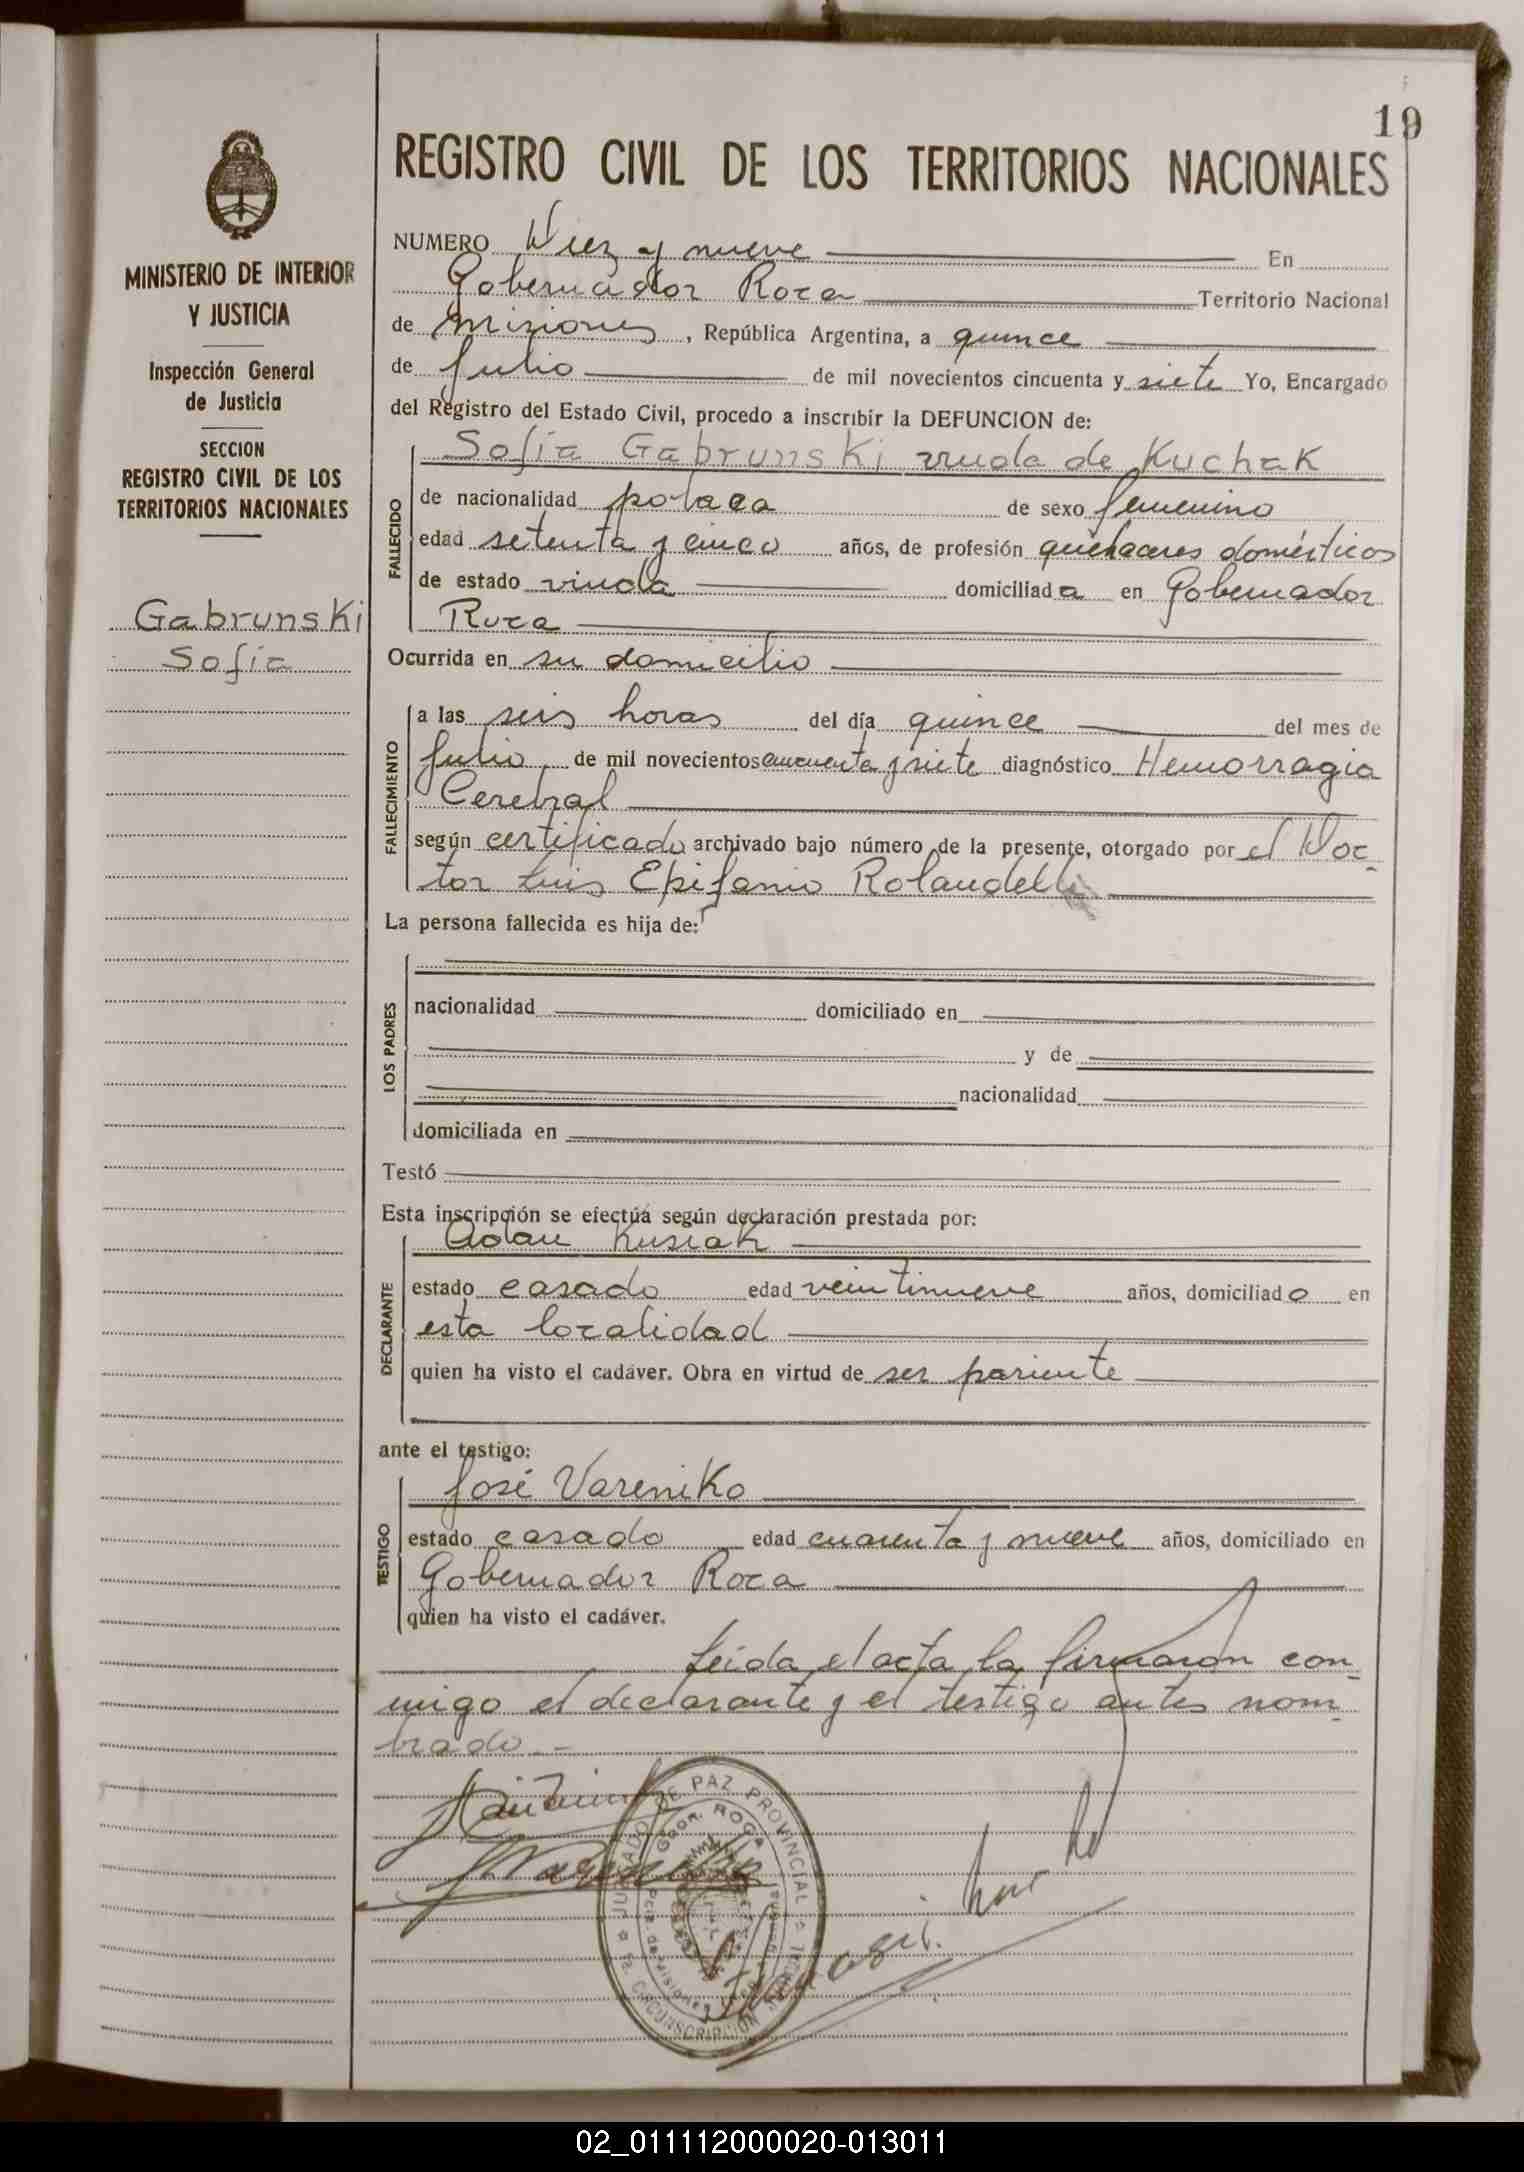 19
REGISTRO CIVIL DE LOS TERRITORIOS NACIONALES
MINISTERIO DE INTERIOR
Y JUSTICIA
Inspección General
de Justicia
SECCION
REGISTRO CIVIL DE LOS
TERRITORIOS NACIONALES
Gabrunski
Sofía
NUMERO Diez y nueve En
Gobernador Roca Territorio Nacional
de Misiones, República Argentina, a quince
de Julio de mil novecientos cincuenta y siete Yo, Encargado
del Registro del Estado Civil, procedo a inscribir la DEFUNCION de:
FALLECIDO
Sofía Gabrunski viuda de Kuchak
de nacionalidad polaca de sexo femenino
edad setenta y cinco años, de profesión quehaceres domésticos
de estado viuda domiciliada en Gobernador
Roca
Ocurrida en su domicilio
FALLECIMIENTO
a las seis horas del día quince del mes de
Julio de mil novecientos cincuenta y siete diagnóstico Hemorragia
Cerebral
según certificado archivado bajo número de la presente, otorgado por el Doc-
tor Luis Epifanio Rolandelli
La persona fallecida es hija de:
LOS PADRES
nacionalidad domiciliado en
y de
nacionalidad
domiciliada en
Testó
Esta inscripción se efectúa según declaración prestada por:
DECLARANTE
Adan Kusiak
estado casado edad veintinueve años, domiciliado en
esta localidad
quien ha visto el cadáver. Obra en virtud de ser pariente
ante el testigo:
TESTIGO
José Vareniko
estado casado edad cuarenta y nueve años, domiciliado en
Gobernador Roca
quien ha visto el cadáver.
Leída el acta la firmaron con-
migo el declarante y el testigo antes nom-
brado.-
JUZGADO DE PAZ PROVINCIAL
GDOR. ROCA
Pcia. de Misiones
CIRCUNSCRIPCION JUDICIAL
02_011112000020-013011